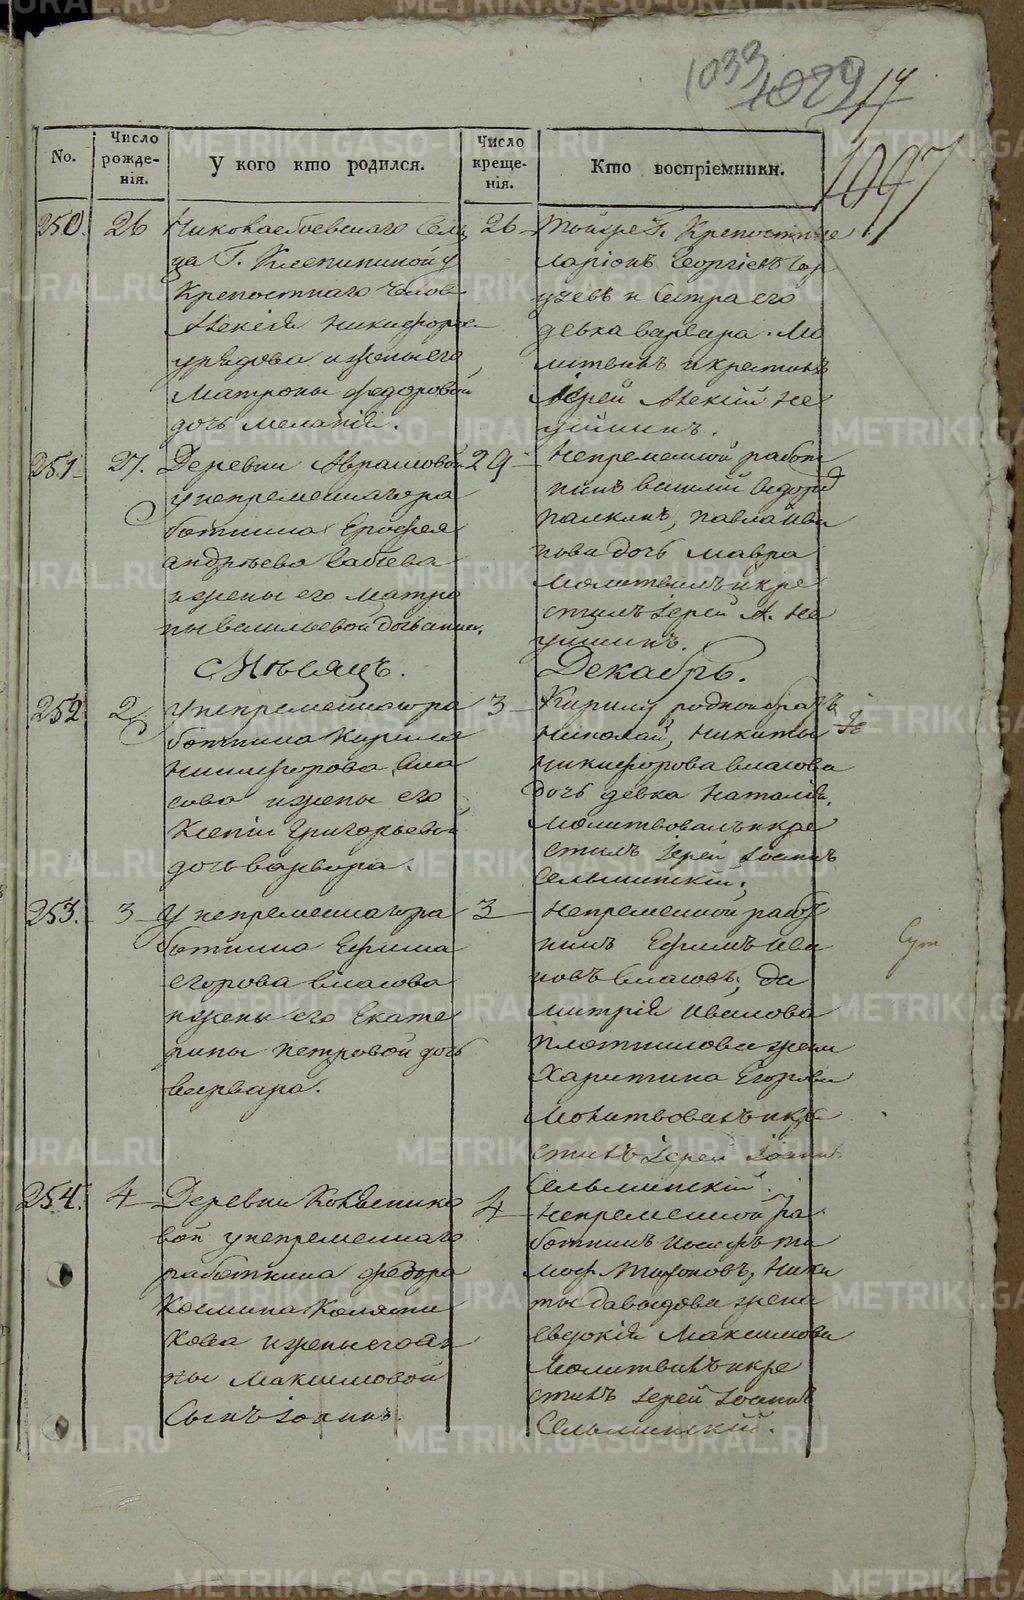 1033
1029
17
1097
No.
Число рожде-нія.
У кого кто родился.
Число креще-нія.
Кто воспріемники.
250. 26
Николаебоевскаго Сель
ца Г. Клепининой у
Крепостнаго челов
Алексія Никифоро
Урядова и жены его
Матроны Федоровой
дочь Меланія.
26
тойже Г. Крепостные
ларіонъ Георгіевъ
и Сестра его
девка варвара. Мо
литвилъ и крестилъ
Іерей Алексій Не
уйминъ.
251 27.
Деревни Абрамовой
у непременнаго ра
ботника Ерофея
андрѣева Бабчева
и жены его Матро
ны васильевой дочь анна.
29
Непременной работ
никъ василій Сидоро
палкинъ, павла ива
нова дочь Мавра
Молитвилъ и кре
стилъ Іерей А. Не
уйминъ.
Мѣсяцъ. Декабрь.
252 2
У непременнаго ра
ботника Кирила
Никифорова вла
сова и жены его
Ксеніи Григорьевой
дочь варвара.
3
Кирилу родной братъ
Николай, Никиты
Никифорова власова
дочь девка Наталія,
Молитвовалъ и кре
стилъ Іерей Іоаннъ
Сельминскій.
253. 3
У непременнаго ра
ботника Ефима
егорова власова
и жены его Екате
рины петровой дочь
варвара.
3
Непременной работ
никъ Ефимъ Ива
новъ власовъ, Ди
митрія Иванова
плотникова жена
Харитина Егорова
Молитвовалъ и кре
стилъ Іерей Іоаннъ
Сельминскій.
254. 4
Деревни Коквенико
вой у непременнаго
работника Федора
Космина Коляти
кова и жены его Ан
ны Максимовой
Сынъ Іоаннъ.
4
Непременной ра
ботникъ Иосифъ Ти
моф. Тифоновъ, Ники
ты Давыдова жена
евдокія Максимова
Молитвилъ и кре
стилъ Іерей Іоаннъ
Сельминскій.
METRIKI.GASO-URAL.RU